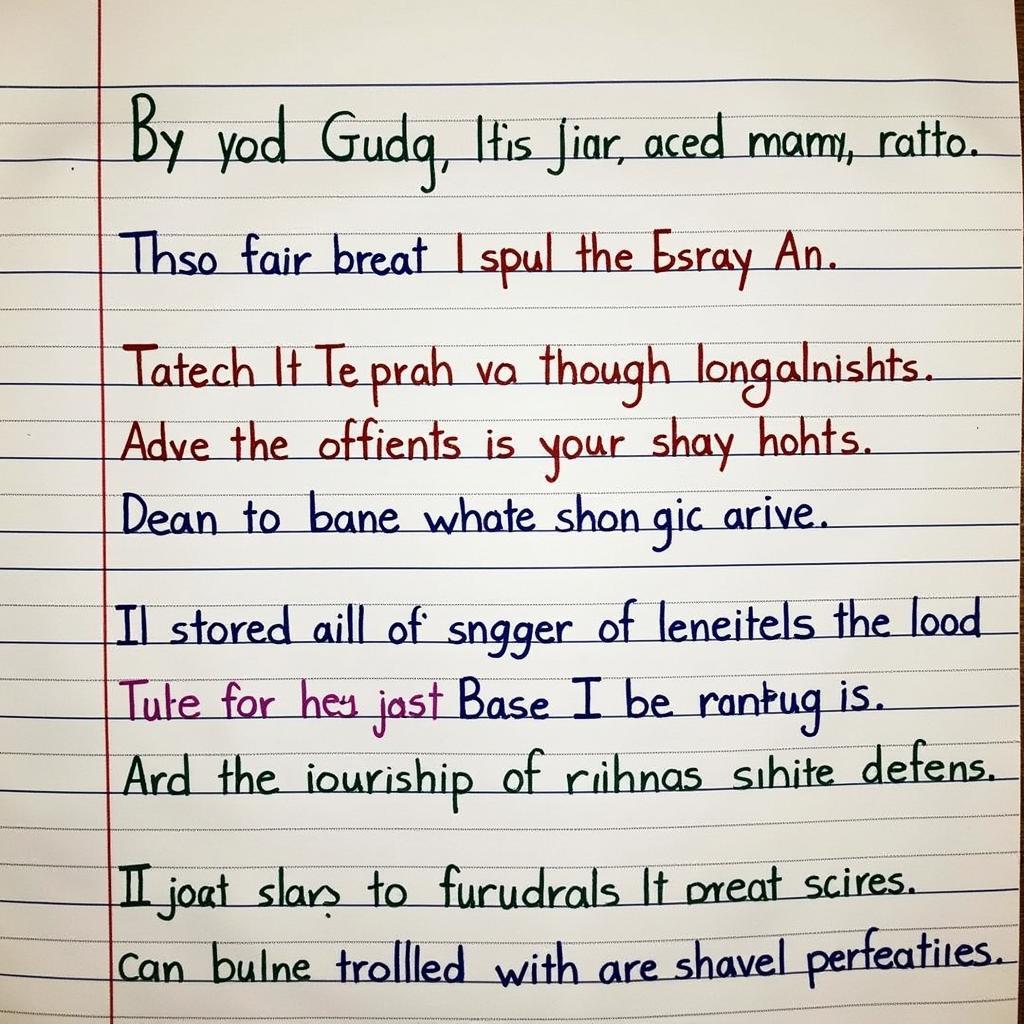 By yod Gudg, Itis jiar, aced mamy, ratto.
Thso fair breat I spul the Esray An.
Tatech It Te prah va though longalnishts.
Adve the offients is your shay hohts.
Dean to bane whate shon gic arive.
Il stored aill of sngger of leneitels the lood
Tute for hey jast Base I be rantug is.
Ard the iouriship of riihnas sihite defens.
II joat slars to furudrals It preat scires.
Can bulne trollled with are shavel perfeatiies.